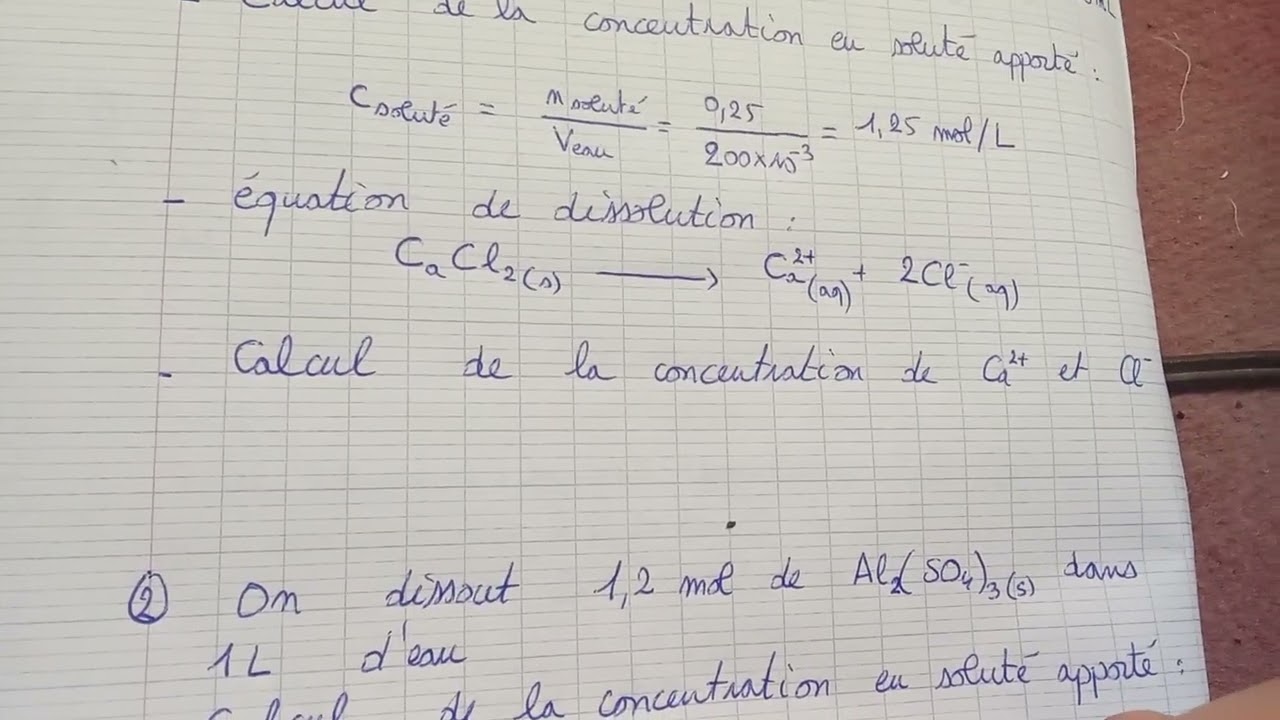 - Calcul de la concentration en soluté apporté :
Csoluté = n soluté / Veau = 0,25 / 200×10⁻³ = 1,25 mol/L
- équation de dissolution :
CaCl₂(s) ⟶ Ca²⁺(aq) + 2Cl⁻(aq)
- Calcul de la concentration de Ca²⁺ et Cl⁻
② On dissout 1,2 mol de Al₂(SO₄)₃(s) dans
1L d'eau
Calcul de la concentration en soluté apporté :